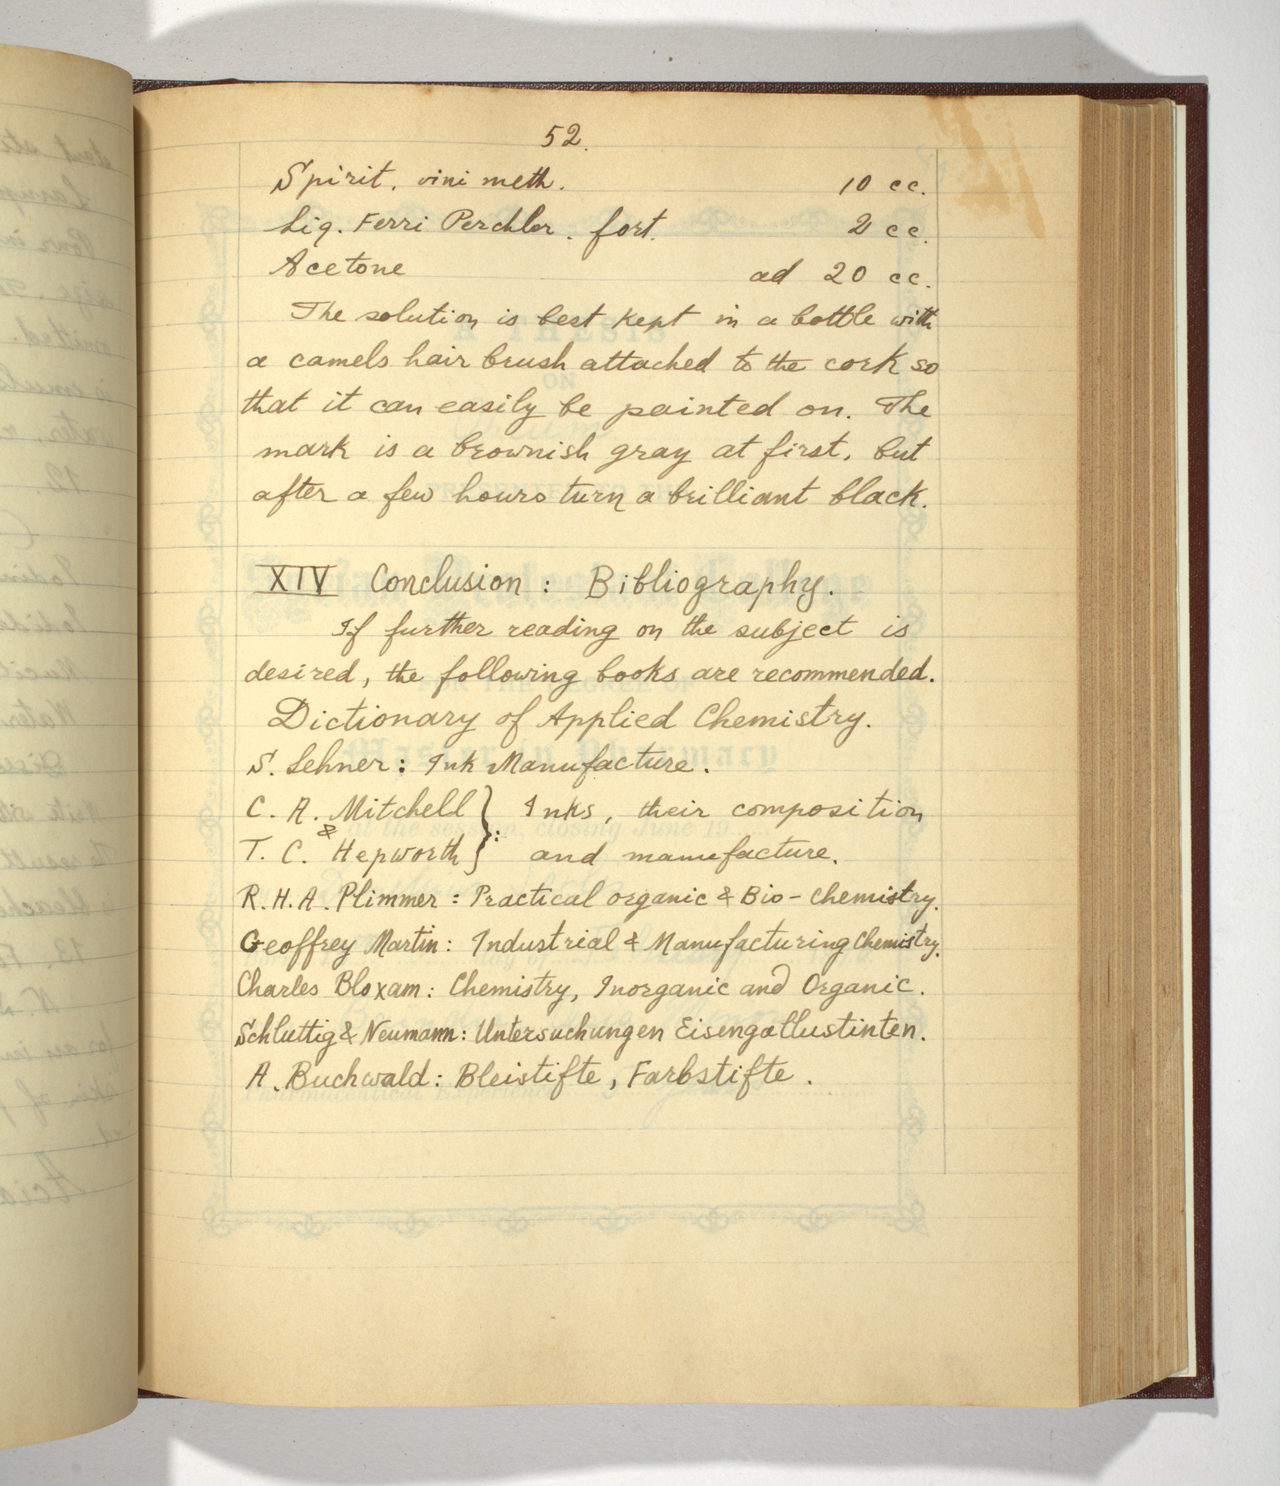 52.
Spirit. vini meth. 10 cc.
Liq. Ferri Perchlor. fort. 2 cc.
Acetone ad 20 cc.
The solution is best kept in a bottle with
a camels hair brush attached to the cork so
that it can easily be painted on. The
mark is a brownish gray at first, but
after a few hours turn a brilliant black.
XIV Conclusion : Bibliography.
If further reading on the subject is
desired, the following books are recommended.
Dictionary of Applied Chemistry.
S. Lehner : Ink Manufacture.
C. A. Mitchell } Inks, their composition
&
T. C. Hepworth } : and manufacture.
R. H. A. Plimmer : Practical organic & Bio-Chemistry.
Geoffrey Martin : Industrial & Manufacturing Chemistry.
Charles Bloxam : Chemistry, Inorganic and Organic.
Schluttig & Neumann : Untersuchungen Eisengallustinten.
A. Buchwald : Bleistifte, Farbstifte.